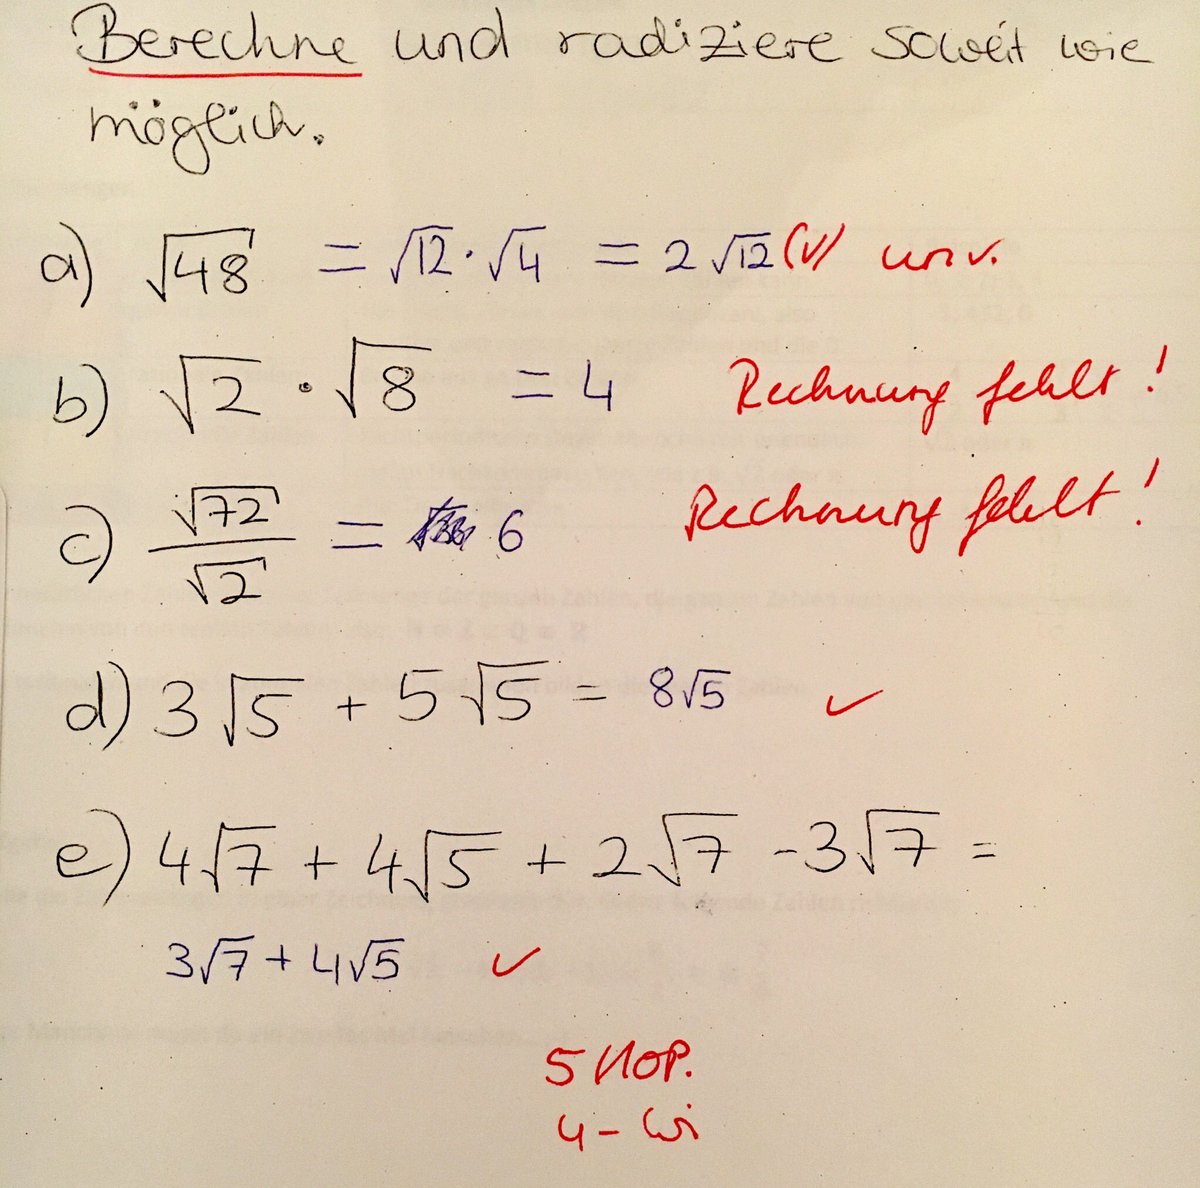 Berechne und radiziere soweit wie
möglich.
a) √48 = √12 · √4 = 2 √12 (√) unv.
b) √2 · √8 = 4 Rechnung fehlt!
c) √72 / √2 = 6 Rechnung fehlt!
d) 3√5 + 5√5 = 8√5 ✓
e) 4√7 + 4√5 + 2√7 - 3√7 =
3√7 + 4√5 ✓
5/10P.
4-